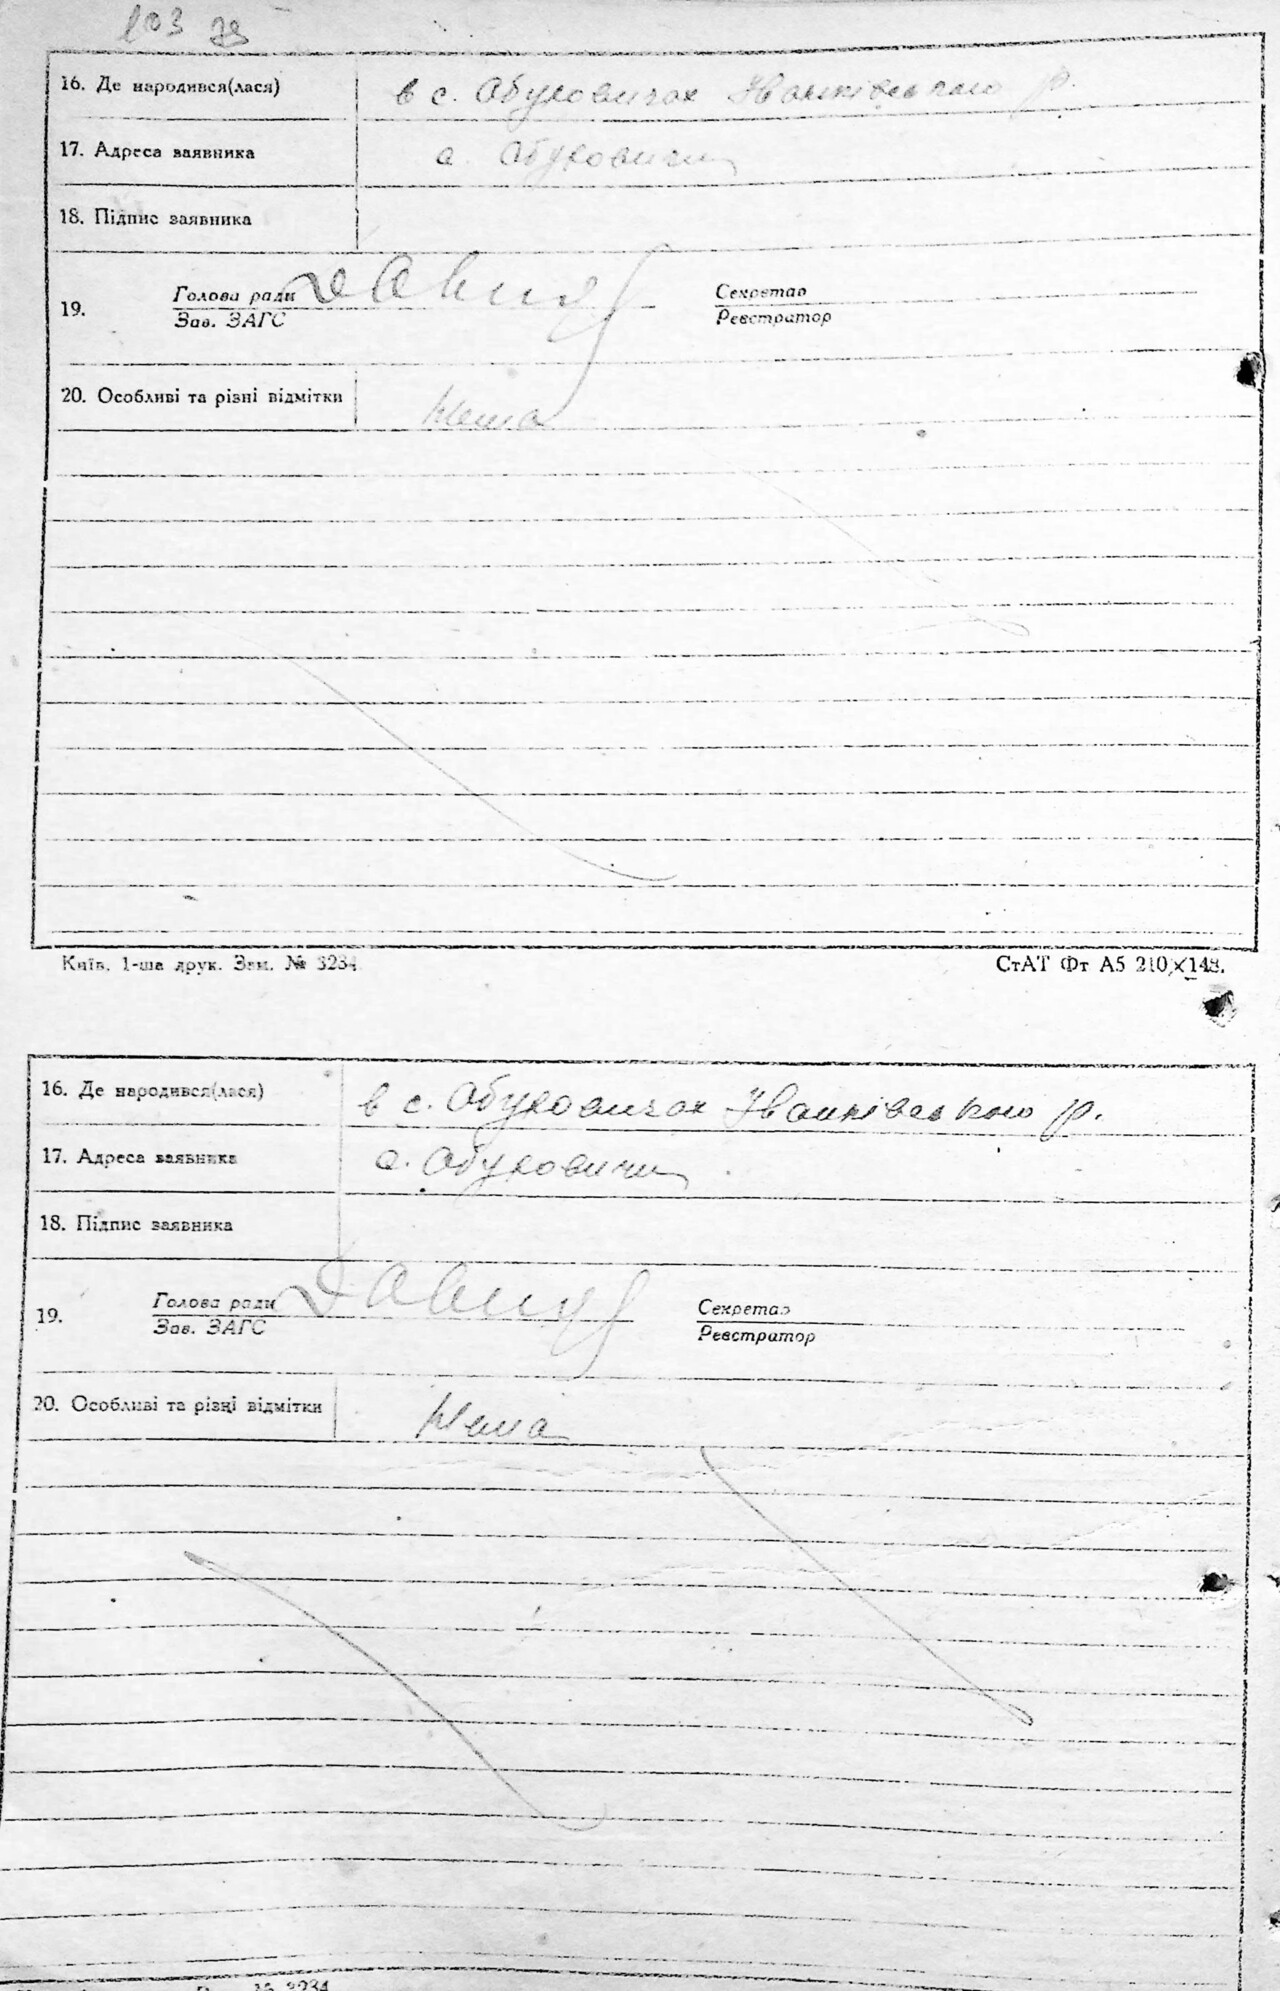 103 79
16. Де народився(лася) в с. Обуховичах Іванківського р.
17. Адреса заявника с. Обуховичи
18. Підпис заявника
19. Голова ради Секретар
Зав. ЗАГС Реєстратор
20. Особливі та різні відмітки Нема
Київ. 1-ша друк. Зам. № 3234 СтАТ Фт А5 210×148.
16. Де народився(лася) в с. Обуховичах Іванківського р.
17. Адреса заявника с. Обуховичи
18. Підпис заявника
19. Голова ради Секретар
Зав. ЗАГС Реєстратор
20. Особливі та різні відмітки Нема
№ 3234